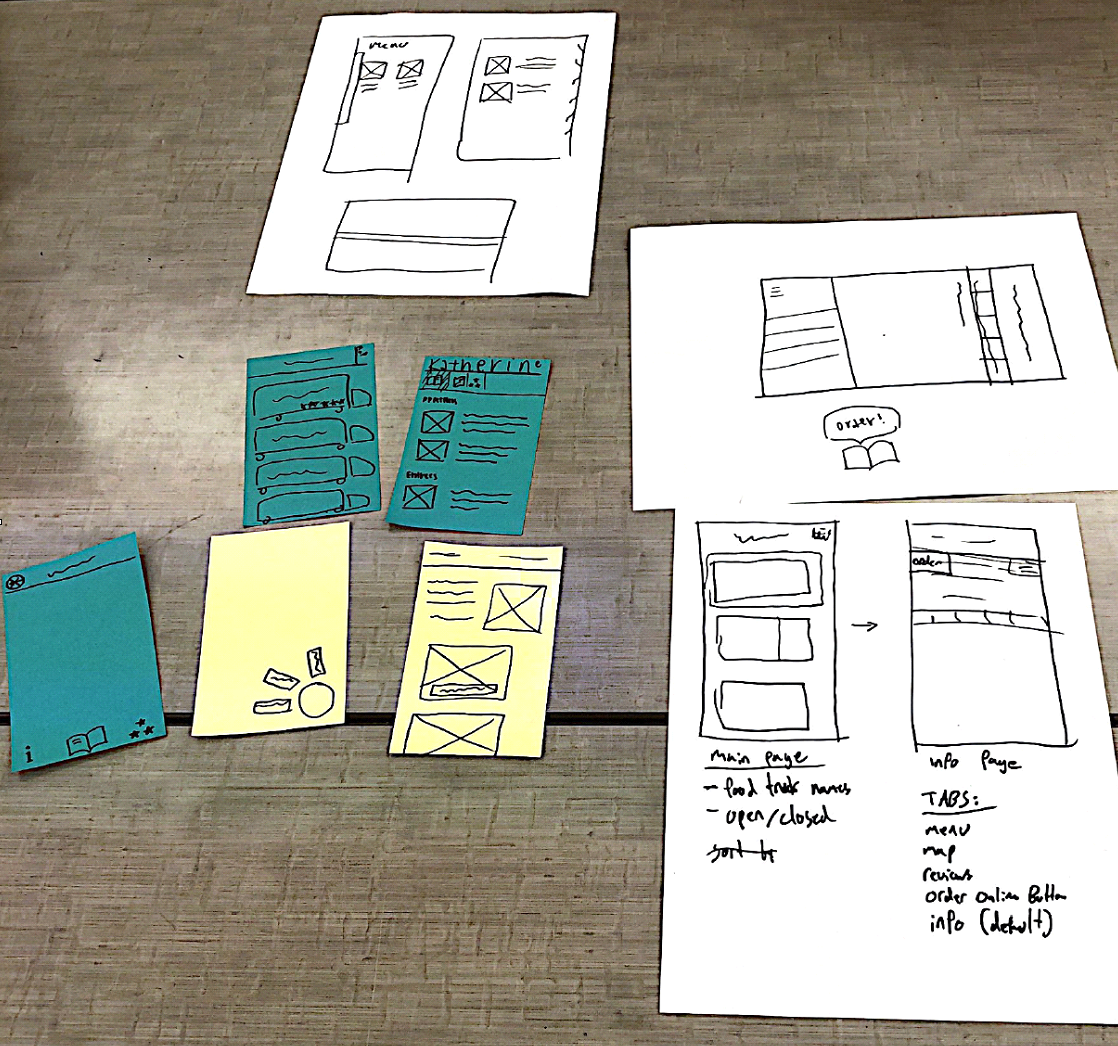 menu
order!
Katherine
Entrees
i
main page
- food truck names
- open/closed
sort by
order
info page
TABS:
menu
map
reviews
order online Button
info (default)